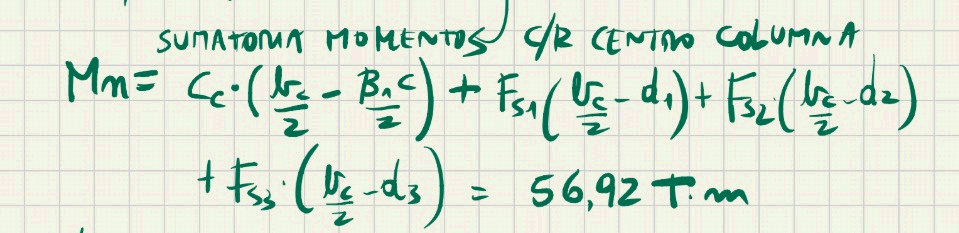 SUMATORIA MOMENTOS C/R CENTRO COLUMNA
Mn = Cc·(bc/2 - β1c/2) + Fs1(bc/2 - d1) + Fs2(bc/2 - d2)
+ Fs3·(bc/2 - d3) = 56,92 T·m